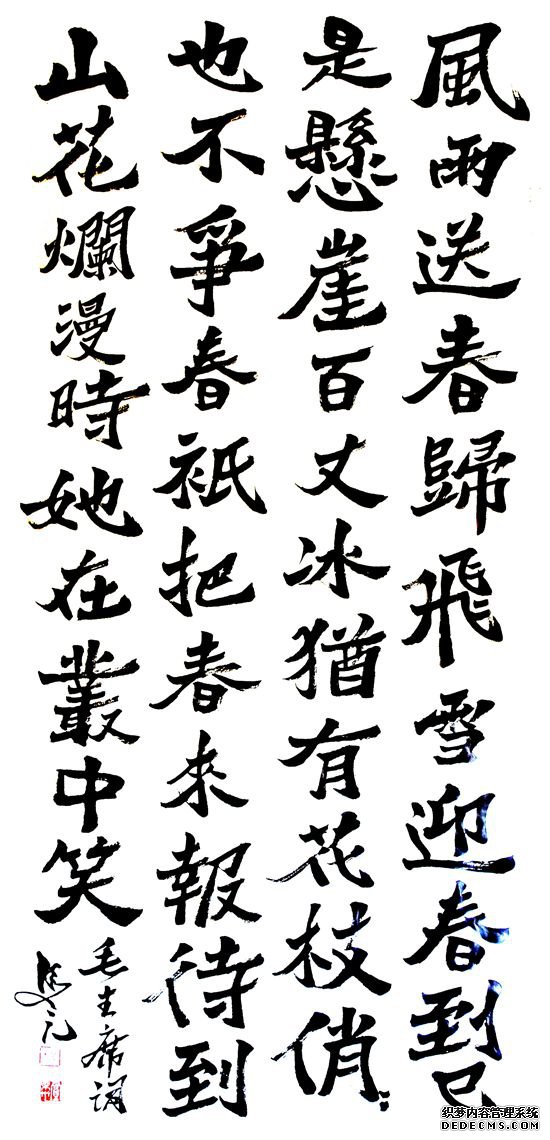 風雨送春歸飛雪迎春到已
是懸崖百丈冰猶有花枝俏〻
也不爭春祇把春來報待到
山花爛漫時她在叢中笑
毛主席詞
织梦内容管理系统
DEDECMS.COM